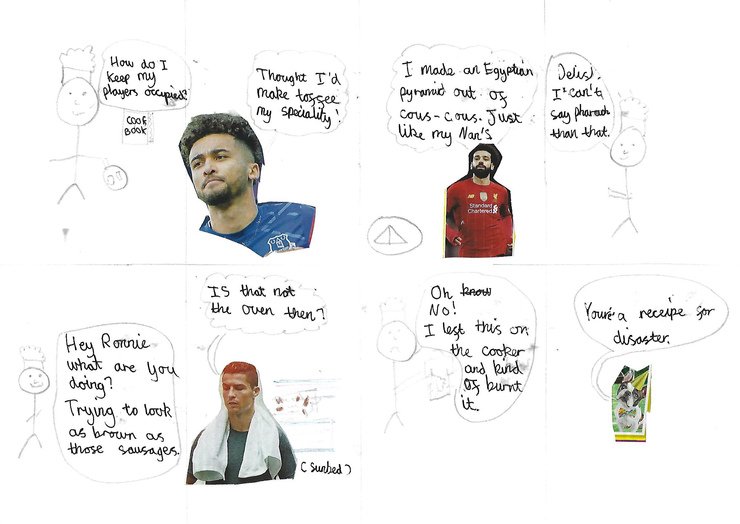 How do I
keep my
players occupied?
COOK
BOOK
Thought I'd
make toffee
my speciality!
I made an Egyptian
pyramid out of
cous-cous. Just
like my Nan's
Standard
Chartered
I can't
say pharaoh
than that.
Hey Ronnie
what are you
doing?
Trying to look
as brown as
those sausages.
IS that not
the oven then?
(sunbed)
Oh know
No!
I left this on
the cooker
and kind
of burnt
it.
You're a receipe for
disaster.